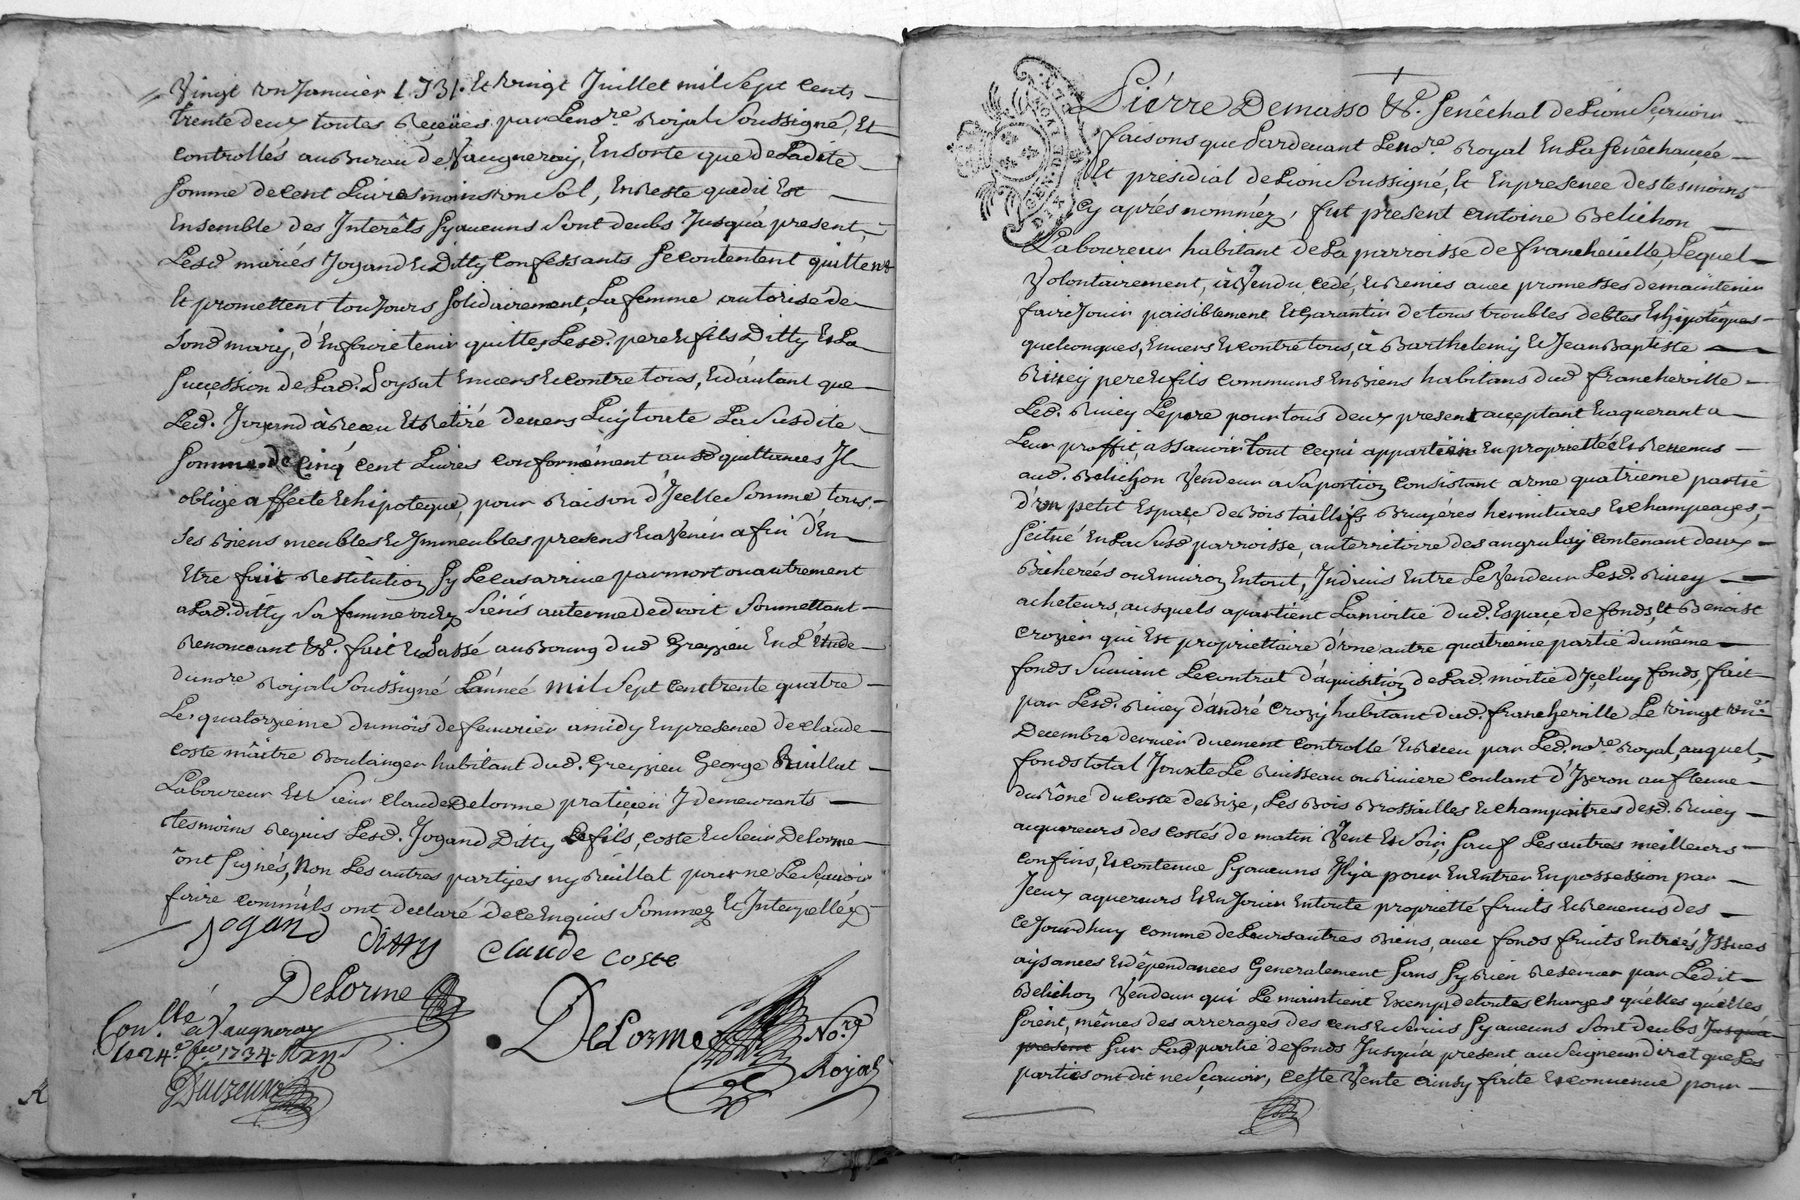 Vingt un Janvier 1731. et vingt Juillet mil sept cents
trente deux toutes Receües par Le no.re Roÿal Soussigné, et
controllés au Bureau de Vaugneraÿ, En sorte que de Ladite
somme de cent Livres moins un sol, en Reste que dit Est
Ensemble des Interêts sÿ aucuns sont deubs Jusqu'à present,
Lesd. mariés Jogand et Ditty Confessants se contentent quittent
Et promettent toujours solidairement, La femme autorisé de
sond. mary, d'En faire tenir quittes Lesd. pere et fils Ditty et La
succession de Lad. Loysat Envers et contre tous, et d'autant que
Led. Jogand à Receu et Retiré devers Luy toute La Susdite
somme de Cinq cent Livres conformément ausd. quittances Il
oblige affecte et hipoteque, pour Raison d'Icelle Somme tous
ses Biens meubles et Immeubles presens et a Venir afin d'En
Etre fait Restitution sy Le cas arrive par mort ou autrement
a Lad. ditty sa femme ou ez siens au terme de droit soumettant
Renonceant &c. fait et Passé au Bourg dud. Grezieu En L'Etude
du no.re Roÿal Soussigné L'année mil sept cent trente quatre
Le quatorzieme du mois de fevrier a midy En presence de claude
coste mâitre Boulanger habitant dud. Grezieu George Ruillat
Laboureur et Sieur Claude Delorme praticien Y demeurants
tesmoins Requis Lesd. Jogand Ditty Le fils, coste et Sieur Delorme
ônt signés, Non Les autres partÿes ny Ruillat pour ne Le sçavoir
faire comm'ils ont declaré de ce Enquis Sommez et Interpelléz
Jogand ditty Claude coste
Delorme
Con.llé a Vaugneray
Le 24.e fev. 1734.
Delorme No.re
Royal
Pierre Demasso &c. senêchal de Lion Sçavoir
faisons que Pardevant Le no.re Royal En La senêchaucée
Et presidial de Lion Soussigné, Et En presence des tesmoins
cy aprés nomméz, fut present antoine Belichon
Laboureur habitant de La parroisse de francheville, Lequel
Volontairement, à Vendu cedé, et Remis avec promesses de maintenir
faire Jouir paisiblement et Garantir de tous troubles debtes et hipotêques
quelconques, Envers et contre tous, à Barthelemy et Jean Baptiste
Rivey pere et fils communs En Biens habitans dud. francheville
Led. Rivey Le pere pour tous deux present acceptant et aquerant a
Leur proffit, assavoir tout ce qui appartient En proprietté et Revenus
aud. Belichon Vendeur a sa portion Consistant a une quatrieme partie
d'un petit Espace de Bois taillifs Bruyéres hermitures et champeages,
scitué En La susd. parroisse, au territoire des angrulay contenant deux
Bicherées ou Environ En tout, Indivis Entre Le Vendeur Lesd. Rivey
acheteurs, ausquels apartient La moitié dud. Espace de fonds, et Benoist
Crozier qui Est propriettaire d'une autre quatrieme partie du même
fonds suivant Le contrat d'aquisition de Lad. moitié d'Iceluy fonds, fait
par Lesd. Rivey d'andré Crozy habitant dud. francheville Le vingt un.e
Decembre dernier duement controllé et Receu par Led. no.re Royal, auquel
fonds total Jouxte Le Ruisseau ou Riviere coulant d'Izeron au fleuve
du Rône du coste de Bize, Les Bois Brossailles et champaitres desd. Rivey
aquereurs des costés de matin Vent et soir, sauf Les autres meilleurs
confins, et contenue sy aucuns Il y a pour En Entrer En possession par
Iceux aquereurs et En Jouir En toute proprietté fruits et Revenus des
ce Jourd'huy comme de Leurs autres Biens, avec fonds fruits Entrées, Issues
aysances et dépendances Generalement sans sy Rien Reserver par Ledit
Belichon Vendeur qui Le maintient Exempt de toutes charges qu'elles qu'elles
soient, mêmes des arrerages des cens et servis sy aucuns sont deubs Jusqu'a
present sur Lad. partie de fonds Jusqu'a present au seigneur direct que Les
parties ont dit ne sçavoir, Ceste Vente ainsy faite et convenue pour